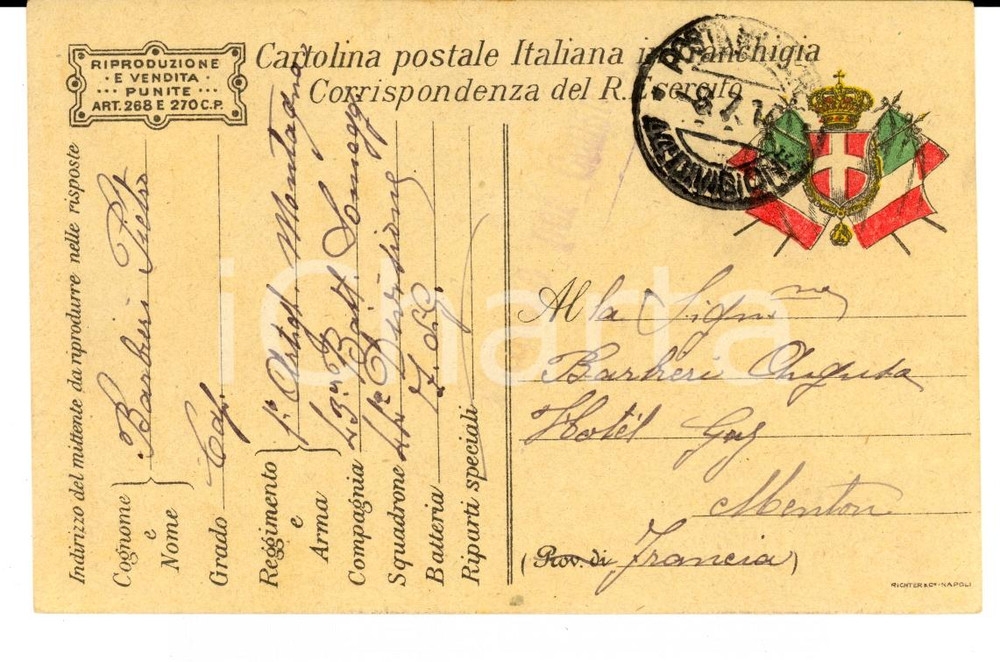 RIPRODUZIONE
E VENDITA
PUNITE
ART. 268 E 270 C.P.
Cartolina postale Italiana in franchigia
Corrispondenza del R. Esercito
POSTA MILITARE
DIVISIONE
Indirizzo del mittente da riprodurre nelle risposte
Cognome
e
Nome
Barberi Pietro
Grado Cap.
Reggimento
e
Arma
1° Artigl. Montagna
Compagnia
Squadrone
Divisione
Batteria
Riparti speciali
Alla Sign
Barberi Augusta
Hotel
Menton
(Prov. di Francia)
RICHTER & Cº - NAPOLI
iCharta